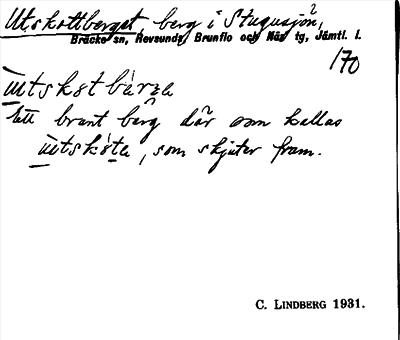 Utskottberget, berg i Stugusjön,
Bräcke sn, Revsunds, Brunflo och Näs tg, Jämtl. l.
170
ūtskotbärɡa
Ett brant berg där som kallas
ūtskåta, som skjuter fram.
C. LINDBERG 1931.